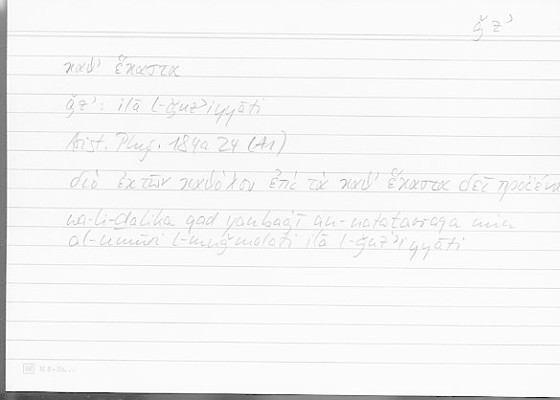 ǧz'
καθ' ἕκαστα
ǧz': ilā l-ǧuz'iyyāti
Arist. Phys. 184a 24 (A1)
διὸ ἐκ τῶν καθόλου ἐπὶ τὰ καθ' ἕκαστα δεῖ προϊέναι
wa-li-ḏalika qad yanbaġī an natatarraqa min
al-umūri l-muǧmalati ilā l-ǧuz'iyyāti